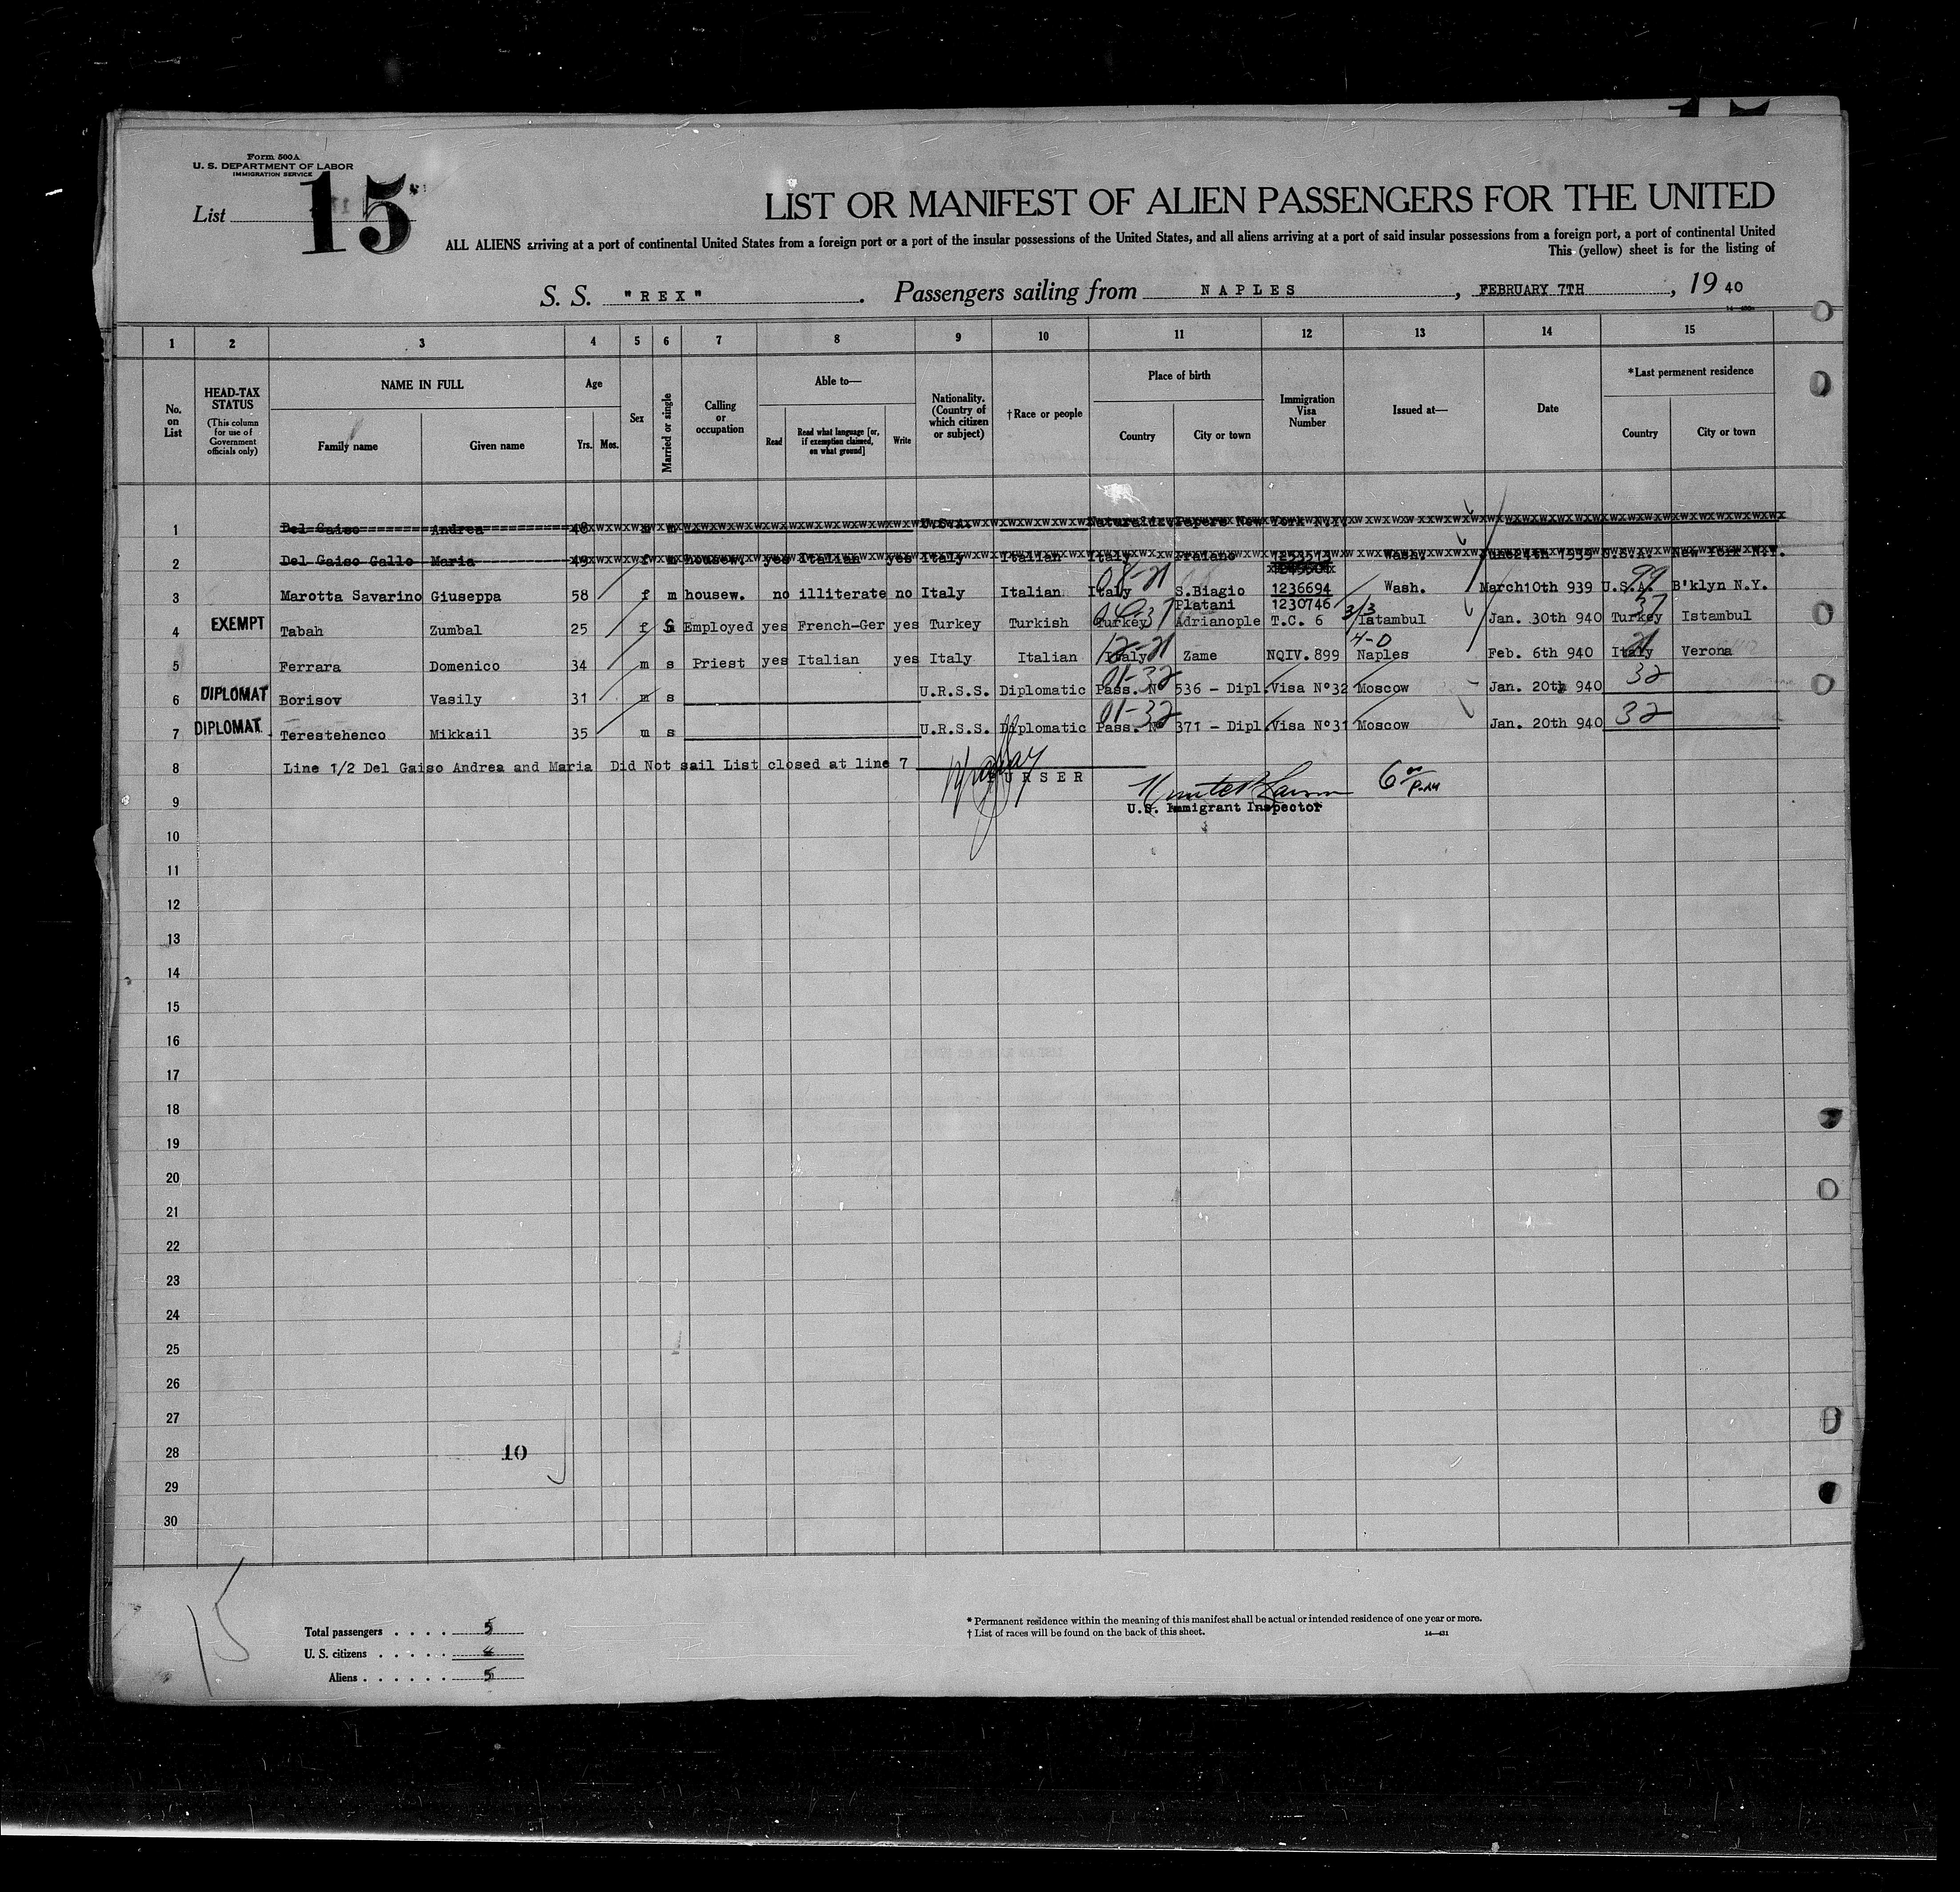 Form 500A
U. S. DEPARTMENT OF LABOR
IMMIGRATION SERVICE
List 15
LIST OR MANIFEST OF ALIEN PASSENGERS FOR THE UNITED
ALL ALIENS arriving at a port of continental United States from a foreign port or a port of the insular possessions of the United States, and all aliens arriving at a port of said insular possessions from a foreign port, a port of continental United
This (yellow) sheet is for the listing of
S. S. "REX". Passengers sailing from NAPLES, FEBRUARY 7TH, 19 40
1 2 3 4 5 6 7 8 9 10 11 12 13 14 15
No. on List
HEAD-TAX STATUS (This column for use of Government officials only)
NAME IN FULL
Family name Given name
Age
Yrs. Mos.
Sex
Married or single
Calling or occupation
Able to—
Read Read what language [or, if exemption claimed, on what ground] Write
Nationality. (Country of which citizen or subject)
†Race or people
Place of birth
Country City or town
Immigration Visa Number
Issued at—
Date
*Last permanent residence
Country City or town
1 Del Gaiso Andrea 48 m m U.S.A. Naturaliz. Papers New York N.Y.
2 Del Gaiso Gallo Maria 49 f m housew. yes Italian yes Italy Italian Italy Praiano Wash. June24th 1939 U.S.A. New York N.Y.
08-21 99
3 Marotta Savarino Giuseppa 58 f m housew. no illiterate no Italy Italian Italy S.Biagio Platani 1236694 1230746 Wash. March10th 939 U.S.A. B'klyn N.Y.
37 3/3 37
4 EXEMPT Tabah Zumbal 25 f S Employed yes French-Ger yes Turkey Turkish Turkey Adrianople T.C. 6 Istambul Jan. 30th 940 Turkey Istambul
12-21 4-D 21
5 Ferrara Domenico 34 m s Priest yes Italian yes Italy Italian Italy Zame NQIV.899 Naples Feb. 6th 940 Italy Verona
01-32 32
6 DIPLOMAT Borisov Vasily 31 m s U.R.S.S. Diplomatic Pass. N° 536 - Dipl.Visa N°32 Moscow Jan. 20th 940
01-32 32
7 DIPLOMAT Terestehenco Mikkail 35 m s U.R.S.S. Diplomatic Pass. N° 371 - Dipl.Visa N°31 Moscow Jan. 20th 940
8 Line 1/2 Del Gaiso Andrea and Maria Did Not sail List closed at line 7
PURSER
9 U.S. Immigrant Inspector
10
11
12
13
14
15
16
17
18
19
20
21
22
23
24
25
26
27
28 10
29
30
15
Total passengers . . . . 5
U. S. citizens . . . . .
Aliens . . . . . . 5
* Permanent residence within the meaning of this manifest shall be actual or intended residence of one year or more.
† List of races will be found on the back of this sheet.
14—431